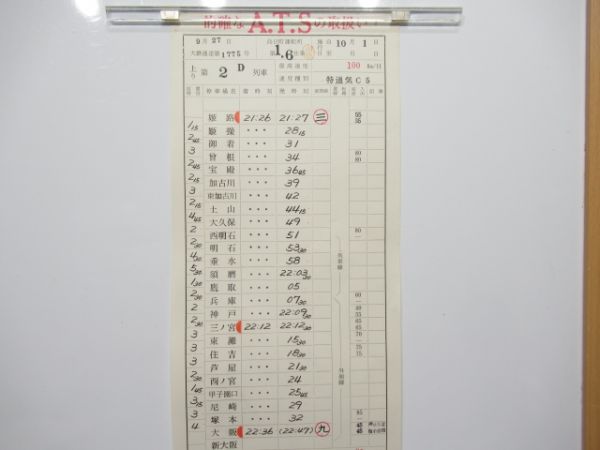 的確な A.T.S の取扱い
9月27日
大鉄達第1775号
1.6
10月1日
上り 第 2 D 列車
最高速度 100 km/h
速度種別 特通気C5
停車場名 着時刻 発時刻
姫路 21:26 21:27 三 55 35
1 15
姫操 ・・・ 28 15
2 45
御着 ・・・ 31
3
曽根 ・・・ 34 80 80
2 45
宝殿 ・・・ 36 45
2 15
加古川 ・・・ 39
3
東加古川 ・・・ 42
2 15
土山 ・・・ 44 15
4 45
大久保 ・・・ 49
2
西明石 ・・・ 51 80
2 30
明石 ・・・ 53 30
4 30
垂水 ・・・ 58
5 30
須磨 ・・・ 22:03 30
1 30
鷹取 ・・・ 05
2 30
兵庫 ・・・ 07 30
2
神戸 ・・・ 22:09 30
三ノ宮 22:12 22:12 30
3
東灘 ・・・ 15 30
3
住吉 ・・・ 18 30
芦屋 ・・・ 21 30
西ノ宮 ・・・ 24
1 45
甲子園口 ・・・ 25 45
3 15
尼崎 ・・・ 29
3
塚本 ・・・ 32
4
大阪 22:36 (22:47) 九
新大阪